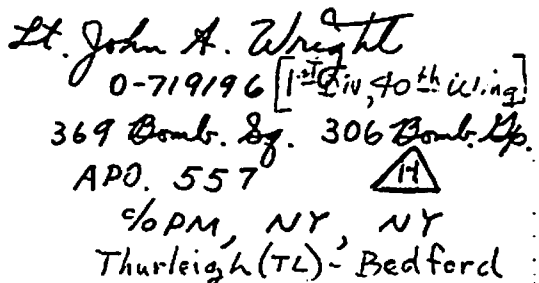 Lt. John A. Wright
0-719196 [1st Div, 40th Wing]
369 Bomb. Sq. 306 Bomb. Gp.
APO. 557 H
c/o PM, NY, NY
Thurleigh (TL) - Bedford